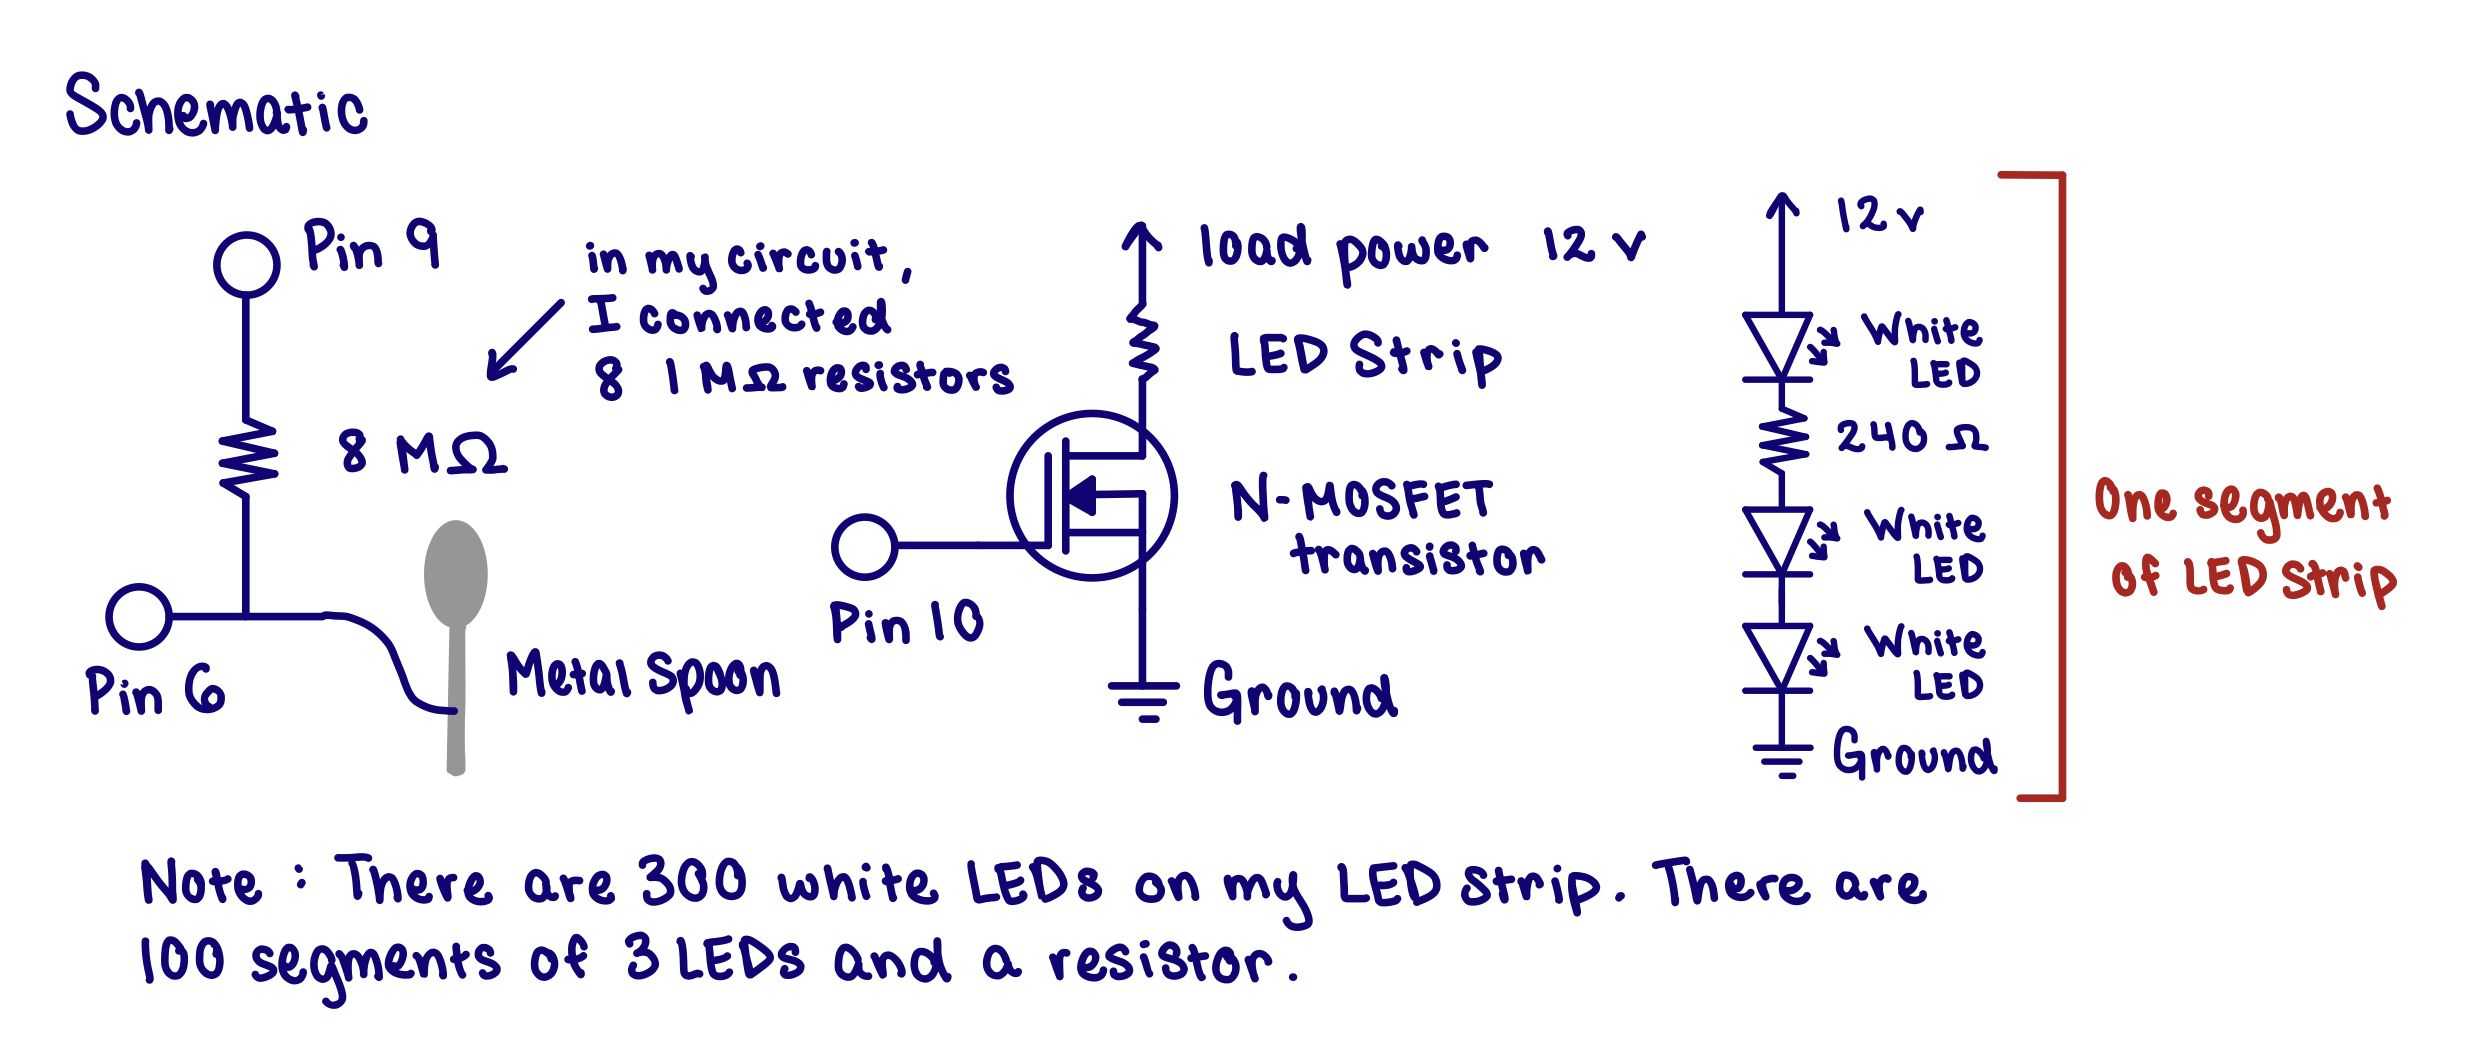 Schematic
Pin 9
in my circuit,
I connected
8 1 MΩ resistors
8 MΩ
Pin 6
Metal Spoon
load power 12 v
LED Strip
N-MOSFET
transistor
Pin 10
Ground
12 v
White
LED
240 Ω
White
LED
White
LED
Ground
One segment
of LED strip
Note : There are 300 white LEDs on my LED strip. There are
100 segments of 3 LEDs and a resistor.